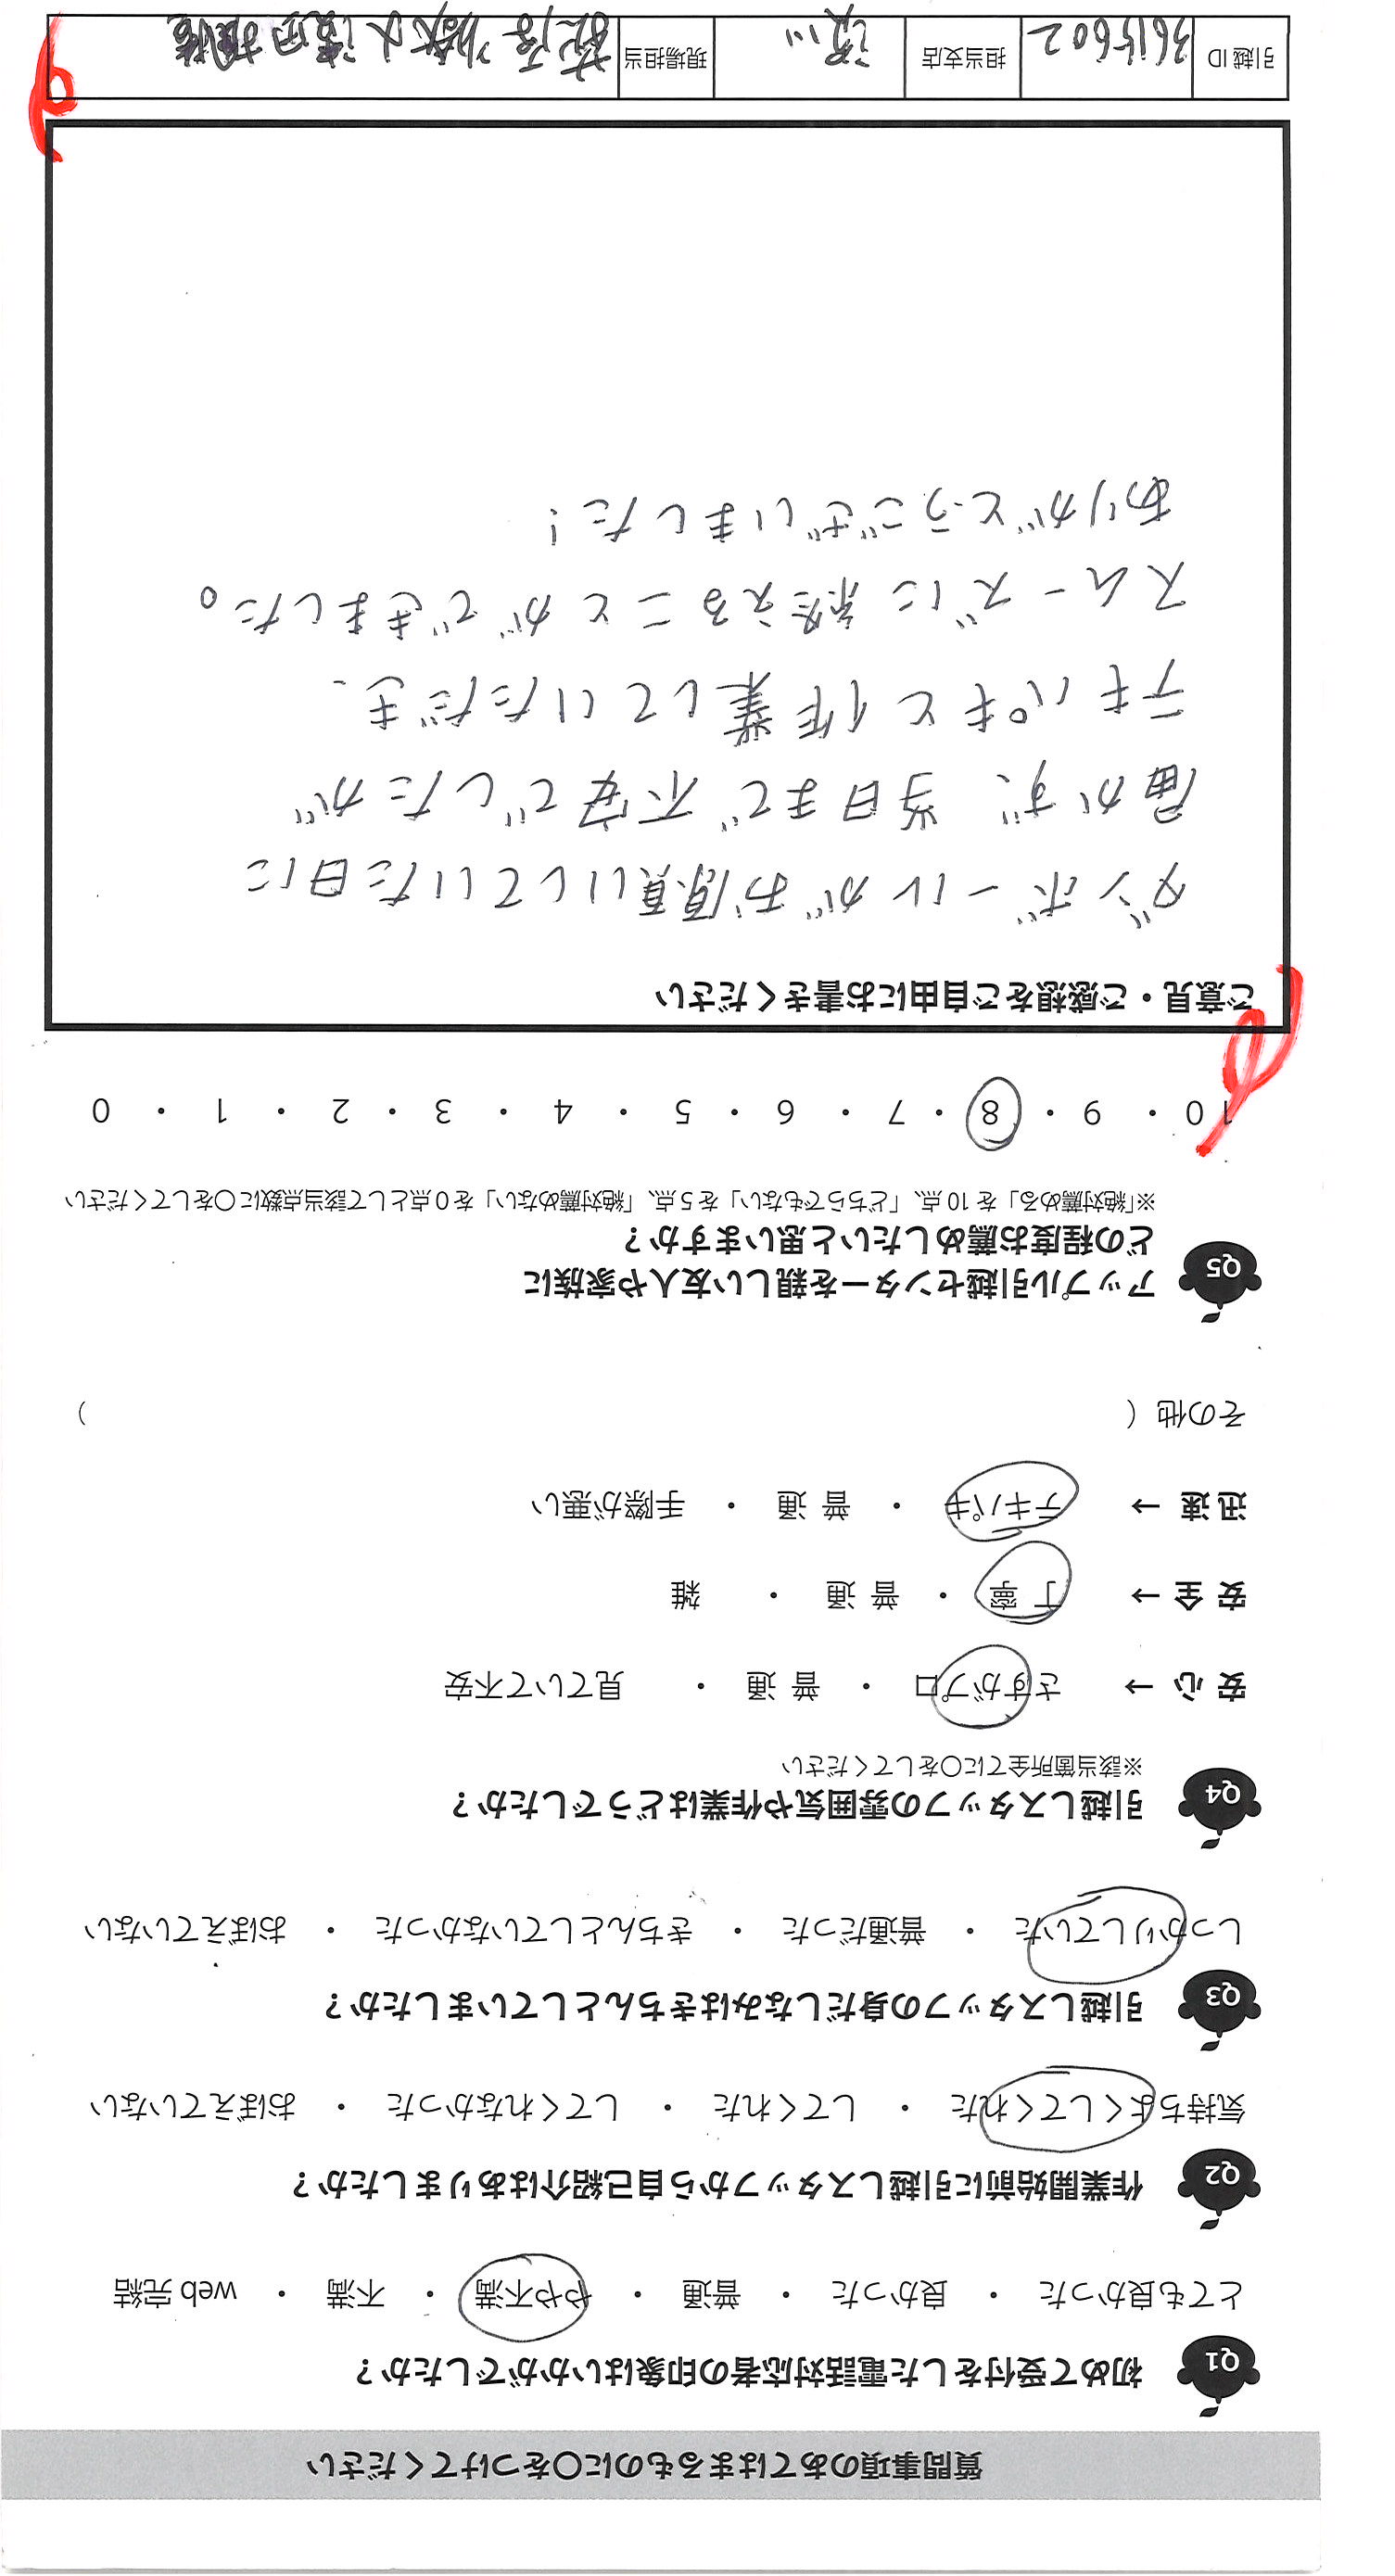 質問事項のあてはまるものに〇をつけてください
Q1 初めて受付をした電話対応者の印象はいかがでしたか？
とても良かった ・ 良かった ・ 普通 ・ やや不満 ・ 不満 ・ web 完結
Q2 作業開始前に引越しスタッフから自己紹介はありましたか？
気持ちよくしてくれた ・ してくれた ・ してくれなかった ・ おぼえていない
Q3 引越しスタッフの身だしなみはきちんとしていましたか？
しっかりしていた ・ 普通だった ・ きちんとしていなかった ・ おぼえていない
Q4 引越しスタッフの雰囲気や作業はどうでしたか？
※該当箇所全てに〇をしてください
安 心 → さすがプロ ・ 普 通 ・ 見ていて不安
安 全 → 丁 寧 ・ 普 通 ・ 雑
迅 速 → テキパキ ・ 普 通 ・ 手際が悪い
その他（ ）
Q5 アップル引越センターを親しい友人や家族に
どの程度お薦めしたいと思いますか？
※「絶対薦める」を 10 点、「どちらでもない」を 5 点、「絶対薦めない」を 0 点として該当点数に〇をしてください
10 ・ 9 ・ 8 ・ 7 ・ 6 ・ 5 ・ 4 ・ 3 ・ 2 ・ 1 ・ 0
ご意見・ご感想をご自由にお書きください
ダンボールがお願いしていた日に
届かず、当日まで不安でしたが
テキパキと作業していただき、
スムーズに終えることができました。
ありがとうございました！
引越 ID 3615602 担当支店 現場担当